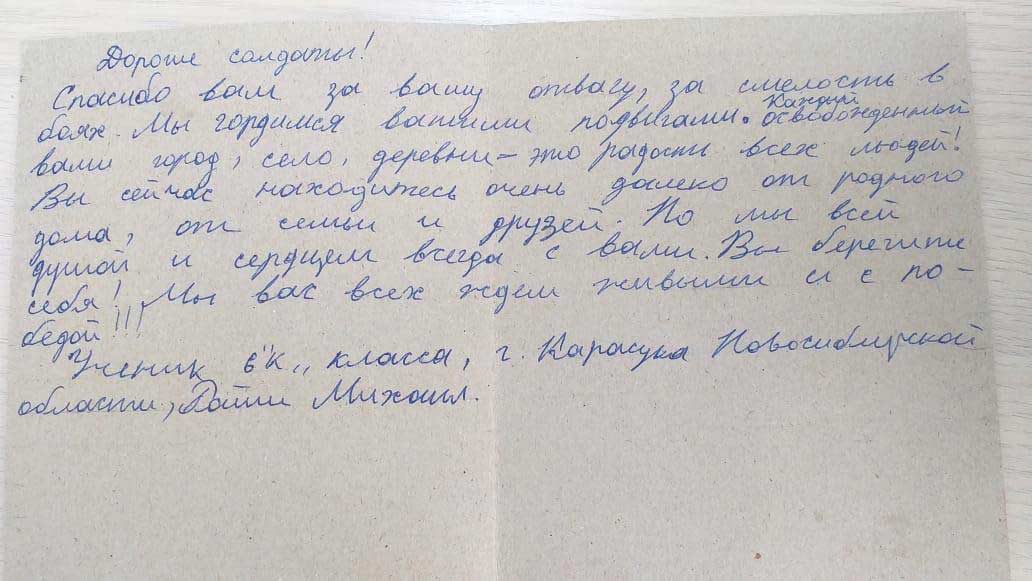 Дороие солдаты!
Спасибо вам за вашу отвагу, за смелость в
боях. Мы гордимся вашими подвигами. Каждый освобожденный
вами город, село, деревни – это радость всех людей!
Вы сейчас находитесь очень далеко от родного
дома, от семьи и друзей. Но мы всей
душой и сердцем всегда с вами. Вы берегите
себя! Мы вас всех ждем живыми и с по-
бедой!!!
Ученик 6"К„ класса, г. Карасука Новосибирской
области, Михаил.